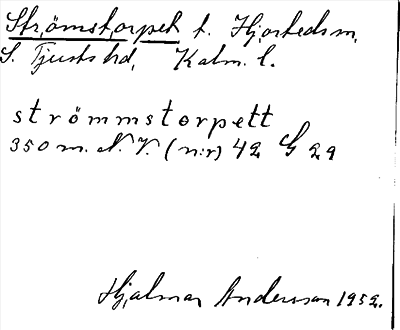 Strömstorpet t. Hjorteds sn,
S. Tjusts hd, Kalm. l.
strömmstorpett
350 m. N. V. (nr) 42 G 29
Hjalmar Andersson 1952.